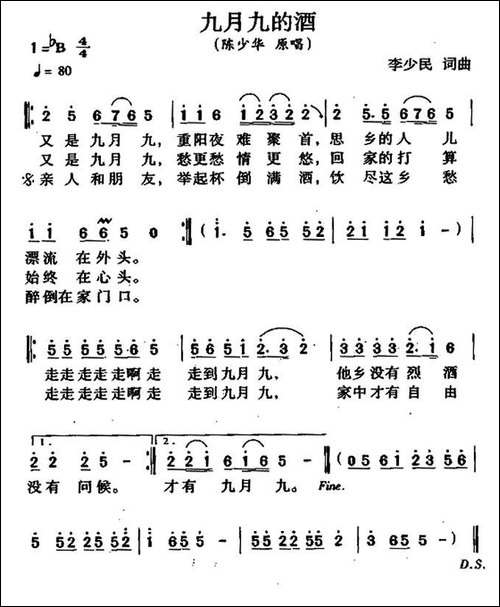 九月九的酒
(陈少华 原唱)
1=♭B 4/4
♩=80
李少民 词曲
2 5 6 7 6 5 | 1 1 6 1 2 3 2 2 | 2 5· 5 6 7 6 5
又是九月九，重阳夜难聚首，思乡的人儿
又是九月九，愁更愁情更悠，回家的打算
亲人和朋友，举起杯倒满酒，饮尽这乡愁
1 1 6 6 5 0 :‖ (1· 5 6 5 5 2 | 2 1 2 1 2 1 -)
漂流在外头。
始终在心头。
醉倒在家门口。
‖: 5 5 5 5 5 5 6 5 | 5· 5 5 1 2· 3 2 | 3 3 3 3 3 2· 1 6
走走走走走啊走 走到九月九， 他乡没有烈酒
走走走走走啊走 走到九月九， 家中才有自由
1. 2.
2 2 2 5 - :‖ 2 2 1 6 1 6 5 - :‖ (0 5 6 1 2 3 5 6
没有问候。 才有九月九。 Fine.
5 5 2 2 5 5 2 | 1 6 5 5 5 1 - | 2 5 2 5 5 2 1 2 | 3 6 5 5 5 - )
D.S.